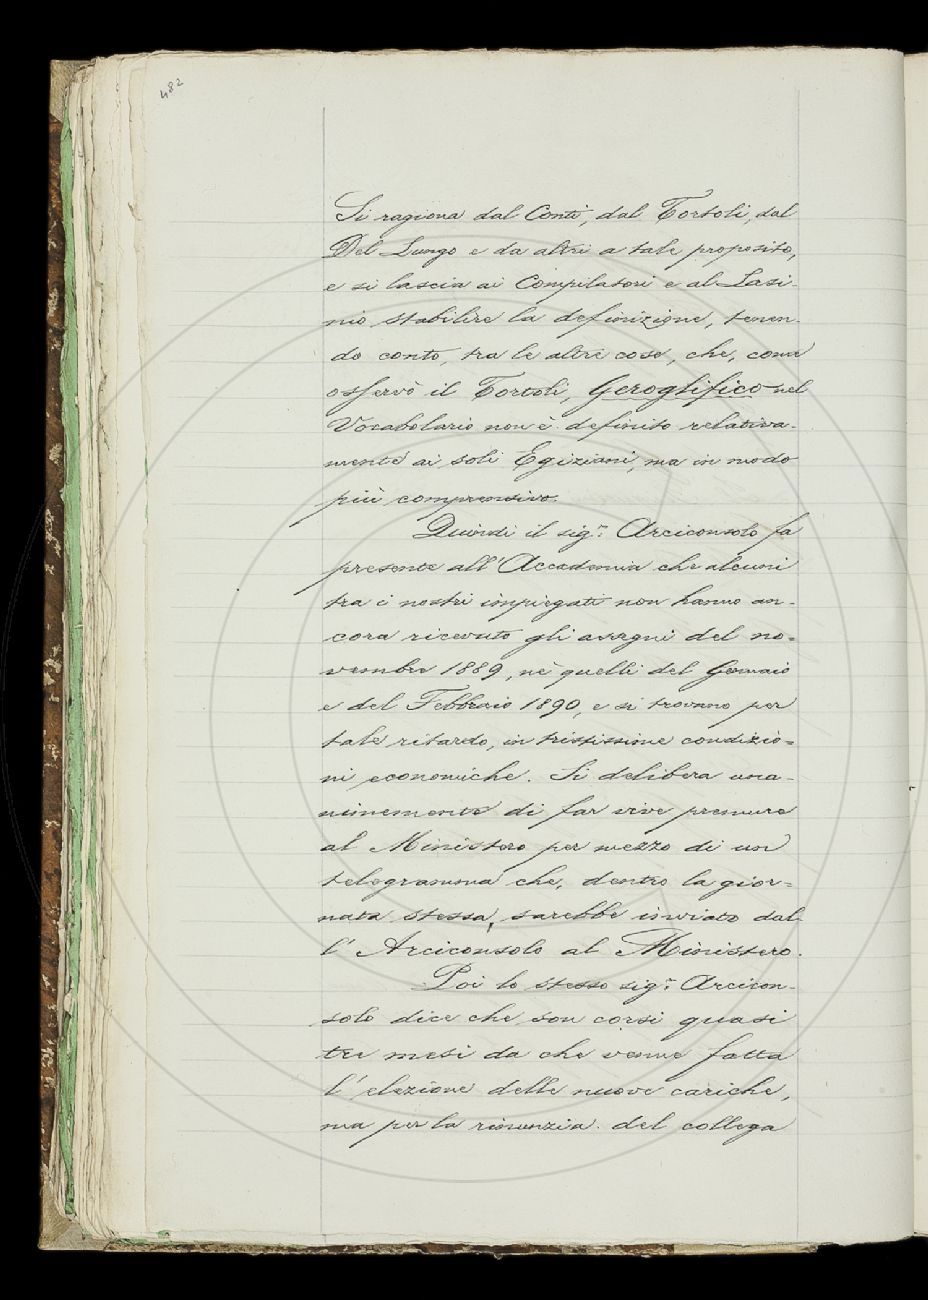 482
Si ragiona dal Conti, dal Tortoli, dal
Del Lungo e da altri a tale proposito,
e si lascia ai Compilatori e al Lasi-
nio stabilire la definizione, tenen-
do conto, tra le altre cose, che, come
osservò il Tortoli, Geroglifico nel
Vocabolario non è definito relativa-
mente ai soli Egiziani, ma in modo
più comprensivo.
Quindi il sig.r Arciconsolo fa
presente all'Accademia che alcuni
tra i nostri impiegati non hanno an-
cora ricevuto gli assegni del no=
vembre 1889, nè quelli del Gennaio
e del Febbraio 1890, e si trovano per
tale ritardo, in tristissime condizio=
ni economiche. Si delibera una-
nimemente di far vive premure
al Ministero per mezzo di un
telegramma che, dentro la gior=
nata stessa, sarebbe inviato dal-
l'Arciconsolo al Ministero.
Poi lo stesso sig.r Arcicon-
solo dice che son corsi quasi
tre mesi da che venne fatta
l'elezione delle nuove cariche,
ma per la rinunzia del collega